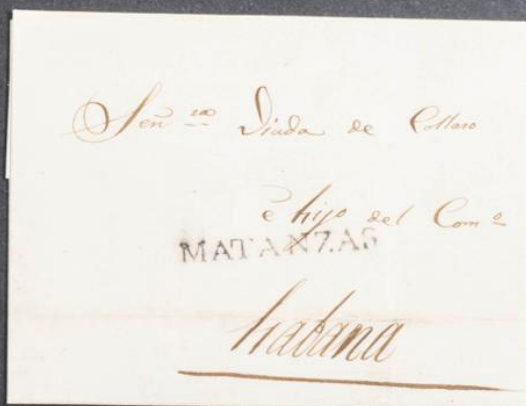 Señ.ras Viuda de Collaso
è hijo del Com.o
MATANZAS
habana